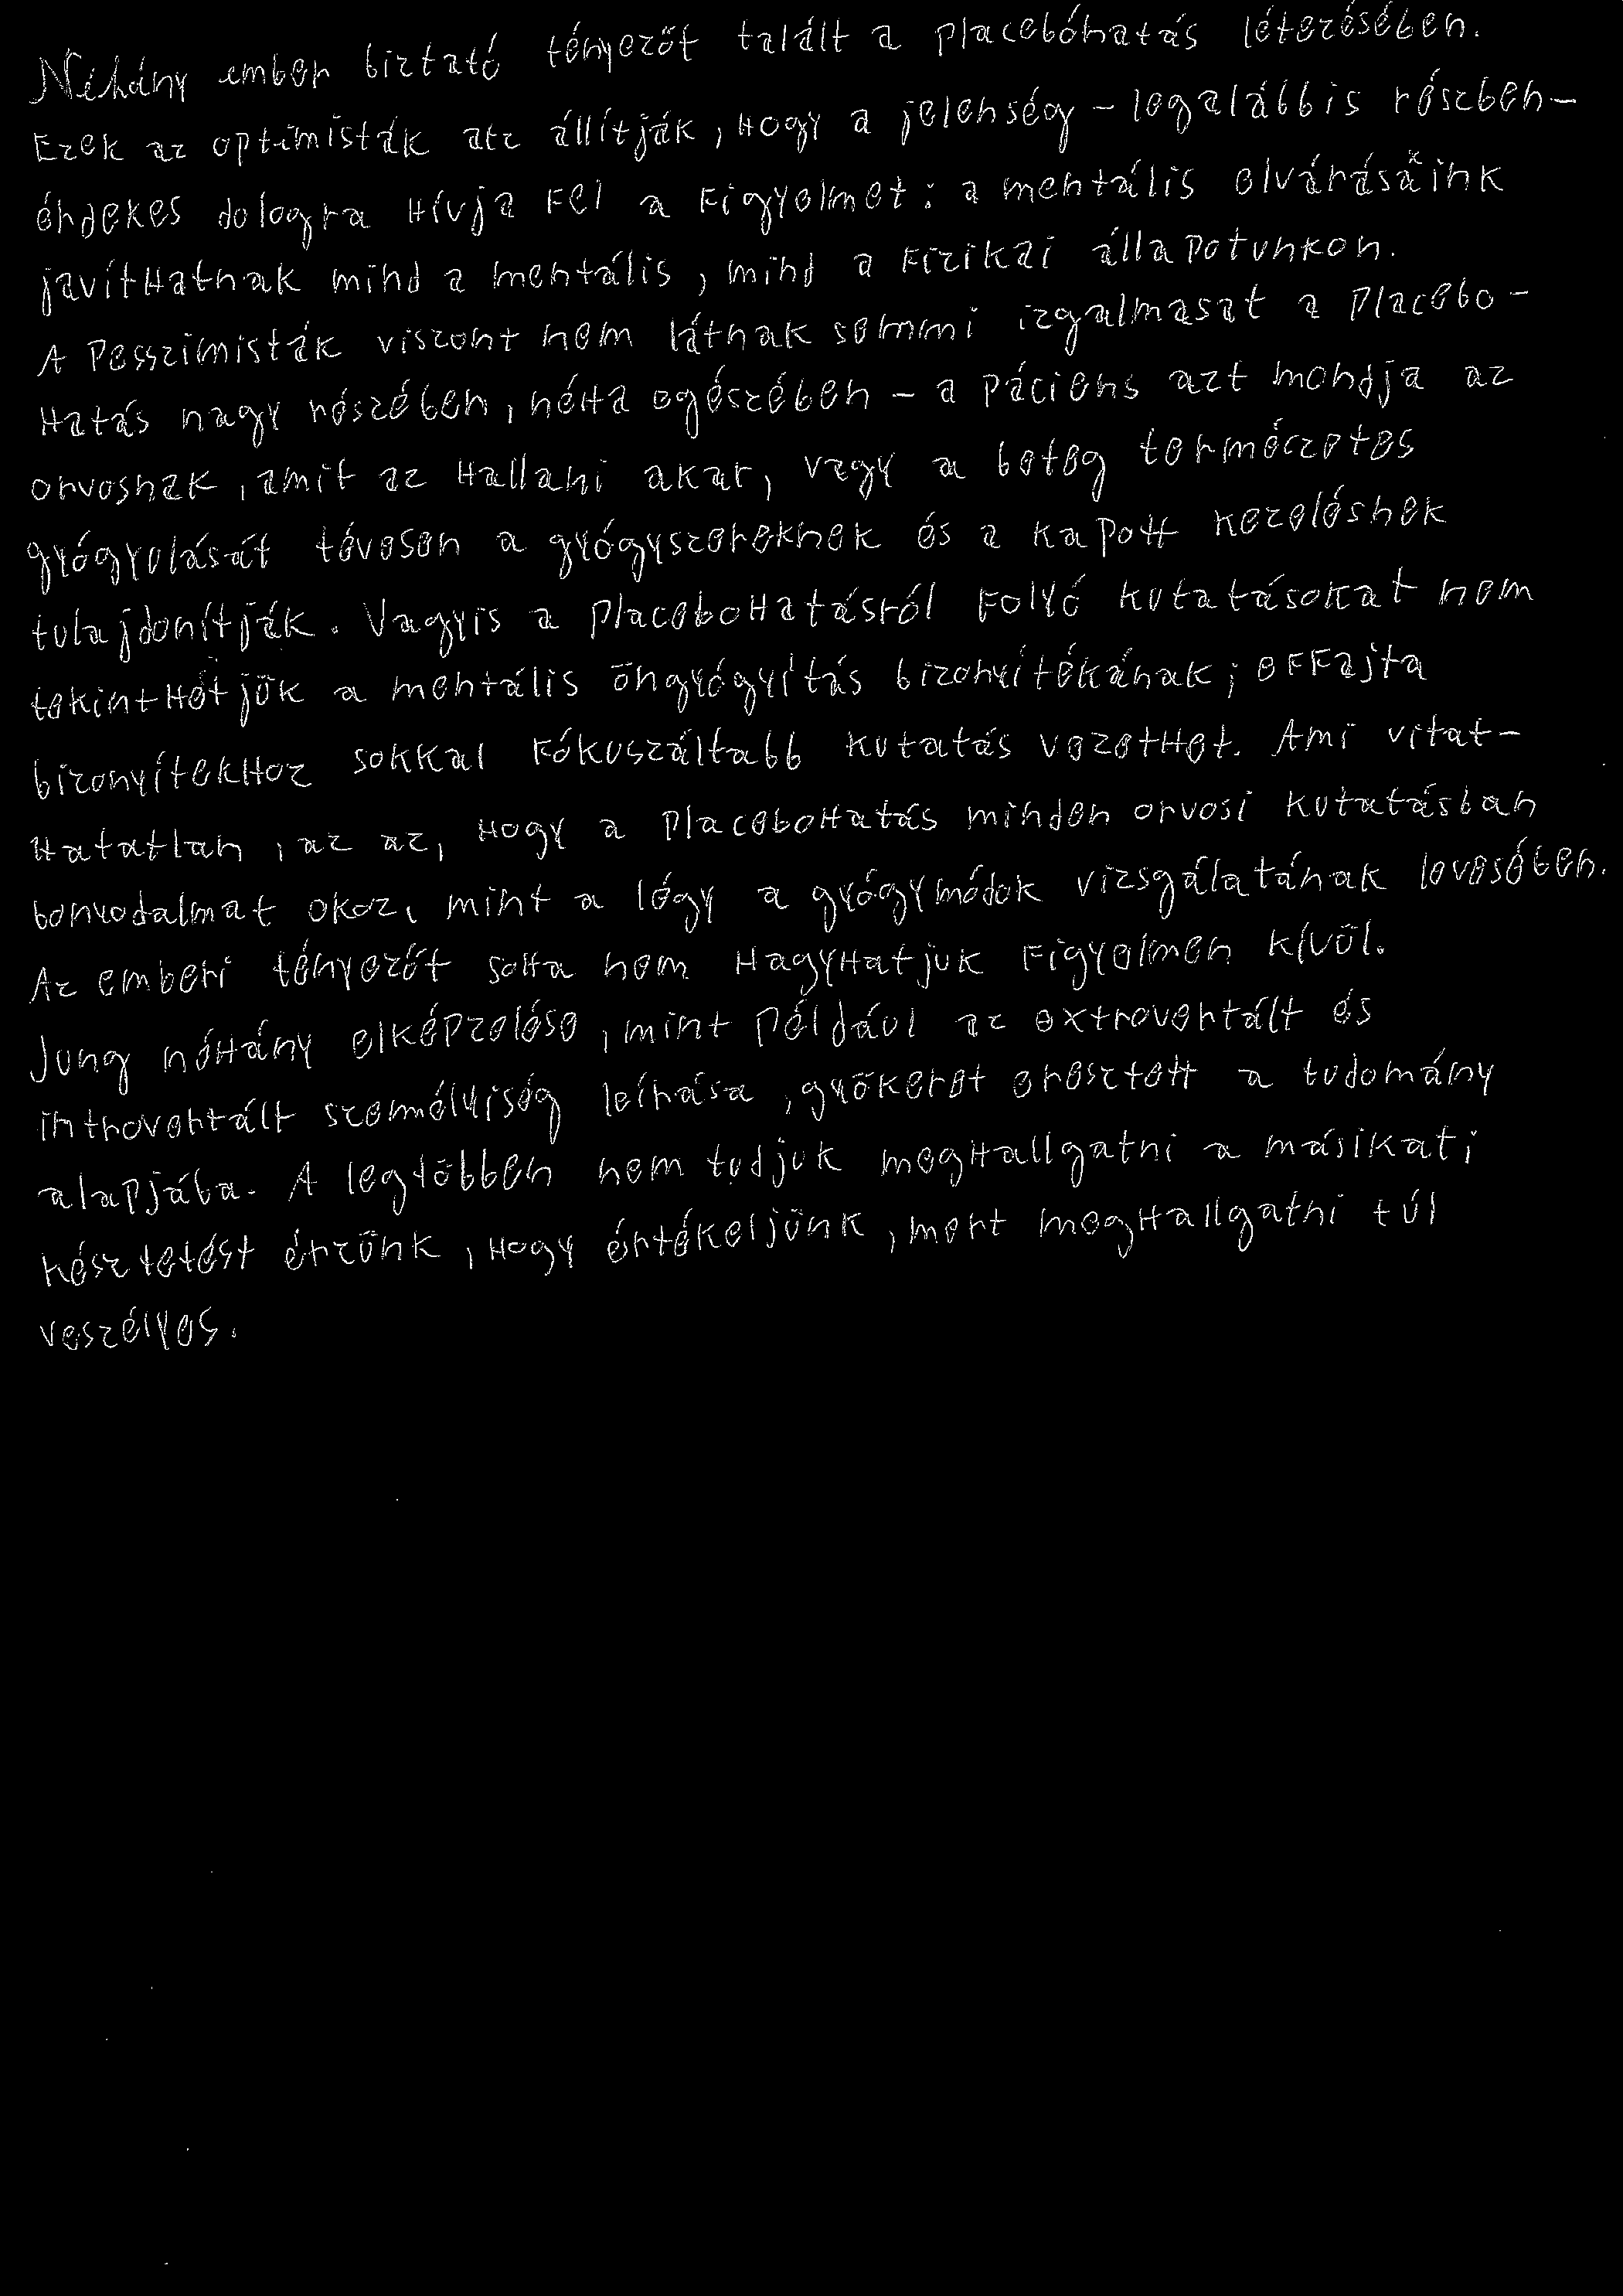 Néhány ember biztató tényezőt talált a placebóhatás létezésében.
Ezek az optimisták atz állítják, hogy a jelenség – legalábbis részben –
érdekes dologra hívja fel a figyelmet: a mentális elvárásáink
javíthatnak mind a mentális, mind a fizikai állapotunkon.
A pesszimisták viszont nem látnak semmi izgalmasat a placebo-
hatás nagy részében, néha egészében – a páciens azt mondja az
orvosnak, amit az hallani akar, vagy a beteg természetes
gyógyulását tévesen a gyógyszereknek és a kapott kezelésnek
tulajdonítják. Vagyis a placebohatásról folyó kutatásokat nem
tekinthetjük a mentális öngyógyitás bizonyítékának; effajta
bizonyítekhoz sokkal fókuszáltabb kutatás vezethet. Ami vitat-
hatatlan, az az, hogy a placebohatás minden orvosi kutatásban
bonyodalmat okoz, mint a légy a gyógymódok vizsgálatának levesében.
Az emberi tényezőt soha nem hagyhatjuk figyelmen kívül.
Jung néhány elképzelése, mint például az extrovertált és
introvertált személyiség leírása, gyökeret eresztett a tudomány
alapjába. A legtöbben nem tudjuk meghallgatni a másikat;
késztetést érzünk, hogy értékeljünk, mert meghallgatni túl
veszélyes.